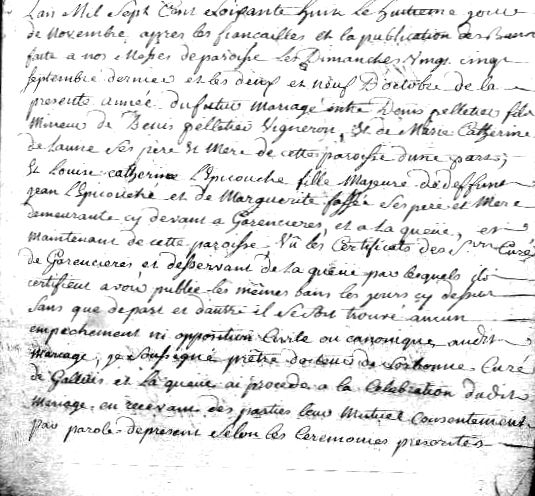 L'an Mil Sept Cent Soixante huit le huitieme jour
de Novembre, apres les fiancailles et la publication des Bans
faite a nos Messes de paroisse Les Dimanches Vingt cinq
septembre dernier et les deux et neuf D'octobre de la
presente année du futur mariage entre Denis pelletier fils
Mineur de Denis pelletier Vigneron, Et de Marie Catherine
de launé Ses pere Et Mere de cette paroisse d'une part,
Et Louise catherine L'Epicouché fille Majeure de deffunt
jean L'Epicouché et de Marguerite fassée Ses pere et Mere
demeurante cy devant a Garencieres, et a La queue, et
maintenant de cette paroisse. Vu les Certificats des Srs Curé
de Garencieres et desservant de La queue par lesquels ils
certifient avoir publié les mêmes bans les jours cy dessus
Sans que de part et d'autre il se soit trouvé aucun
empechement ni opposition Civile ou canonique audit
Mariage, je Soussigné prêtre docteur de Sorbonne Curé
de Galluis et La queue ai procédé a la Celebration dudit
Mariage en recevant des parties leur Mutuel Consentement
par paroles de present Selon les Ceremonies prescrites